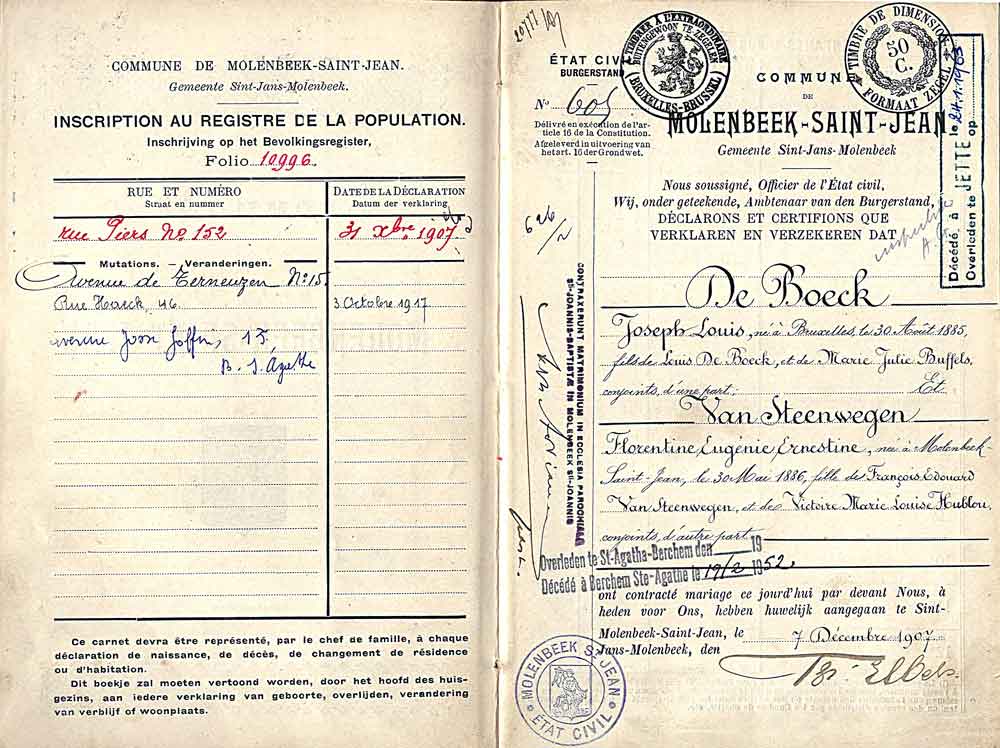 COMMUNE DE MOLENBEEK-SAINT-JEAN.
Gemeente Sint-Jans-Molenbeek.
INSCRIPTION AU REGISTRE DE LA POPULATION.
Inschrijving op het Bevolkingsregister,
Folio 10996.
RUE ET NUMÉRO
Straat en nummer
DATE DE LA DÉCLARATION
Datum der verklaring
rue Piers No 152
31 Xbre 1907
Mutations. - Veranderingen.
Avenue de Terneuzen No 15
Rue Haeck, 46
3 Octobre 1917
avenue Josse Goffin, 17.
B. S. Agathe
Ce carnet devra être représenté, par le chef de famille, à chaque
déclaration de naissance, de décès, de changement de résidence
ou d'habitation.
Dit boekje zal moeten vertoond worden, door het hoofd des huis-
gezins, aan iedere verklaring van geboorte, overlijden, verandering
van verblijf of woonplaats.
ÉTAT CIVI
BURGERSTAND
No 605
Délivré en exécution de l'ar-
ticle 16 de la Constitution.
Afgeleverd in uitvoering van
het art. 16 der Grondwet.
TIMBRER À L'EXTRAORDINAIRE
BUITENGEWOON TE ZEGELEN
BRUXELLES-BRUSSEL
TIMBRE DE DIMENSION
50
C.
FORMAAT ZEGEL
COMMUNE
DE
MOLENBEEK-SAINT-JEAN.
Gemeente Sint-Jans-Molenbeek
Décédé, à JETTE le 24.1.1963
Overleden te JETTE op
Nous soussigné, Officier de l'État civil,
Wij, onder geteekende, Ambtenaar van den Burgerstand,
DÉCLARONS ET CERTIFIONS QUE
VERKLAREN EN VERZEKEREN DAT
De Boeck
Joseph Louis, né à Bruxelles, le 30 Août 1885,
fils de Louis De Boeck, et de Marie Julie Buffels,
conjoints, d'une part; Et
Van Steenwegen
Florentine, Eugénie, Ernestine, née à Molenbeek-
Saint-Jean, le 30 Mai 1886, fille de François Edouard
Van Steenwegen, et de Victoire Marie Louise Hublou,
conjoints, d'autre part
CONTRAXERUNT MATRIMONIUM IN ECCLESIA PAROCHIALI
Sti-JOANNIS-BAPTISTÆ IN MOLENBEEK Sti-JOANNIS
Overleden te St-Agatha-Berchem den 19
Décédé à Berchem Ste-Agathe le 19/2 1952.
ont contracté mariage ce jourd'hui par devant Nous, à
heden voor Ons, hebben huwelijk aangegaan te Sint-
Molenbeek-Saint-Jean, le 7 Décembre 1907
Jans-Molenbeek, den
MOLENBEEK St JEAN
ÉTAT CIVIL